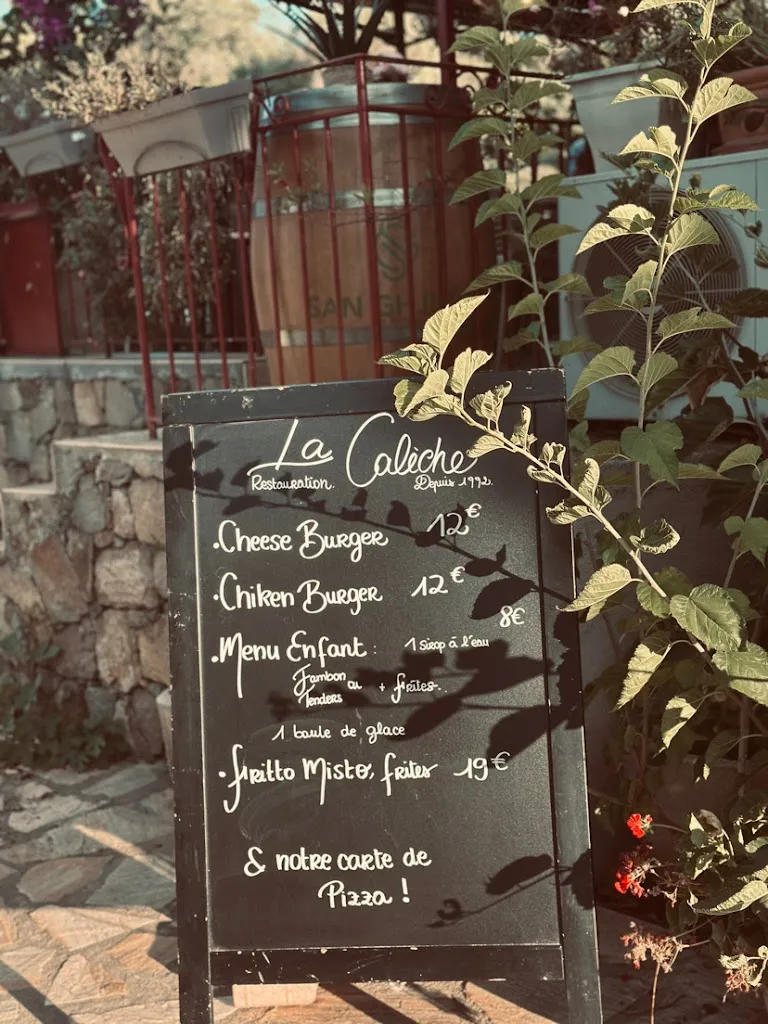 SAN GH
La Calèche
Restauration. Depuis 1992.
• Cheese Burger 12€
• Chiken Burger 12€
8€
• Menu Enfant : 1 Sirop à l'eau
Jambon ou Tenders + frites.
1 boule de glace
• Fritto Misto, frites 19€
& notre carte de
Pizza !